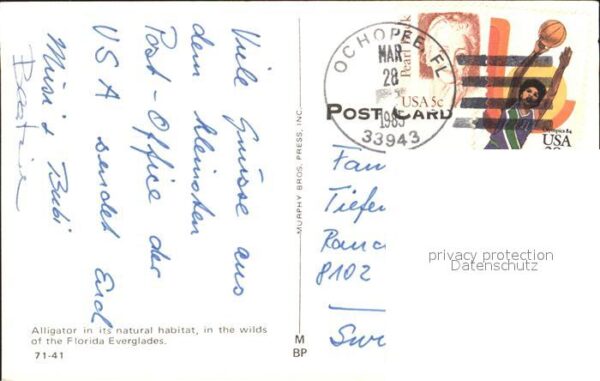 Viele Grüsse aus
dem kleinsten
Post-Office der
USA sendet Euch
Misi & Bubi
Beatrice
Alligator in its natural habitat, in the wilds
of the Florida Everglades.
71-41
MURPHY BROS. PRESS, INC.
M
BP
POST CARD
OCHOPEE, FL
MAR
28
1985
33943
Pearl Buck
USA 5c
Olympics 84
USA
Fam
Tiefen
8102
privacy protection
Datenschutz